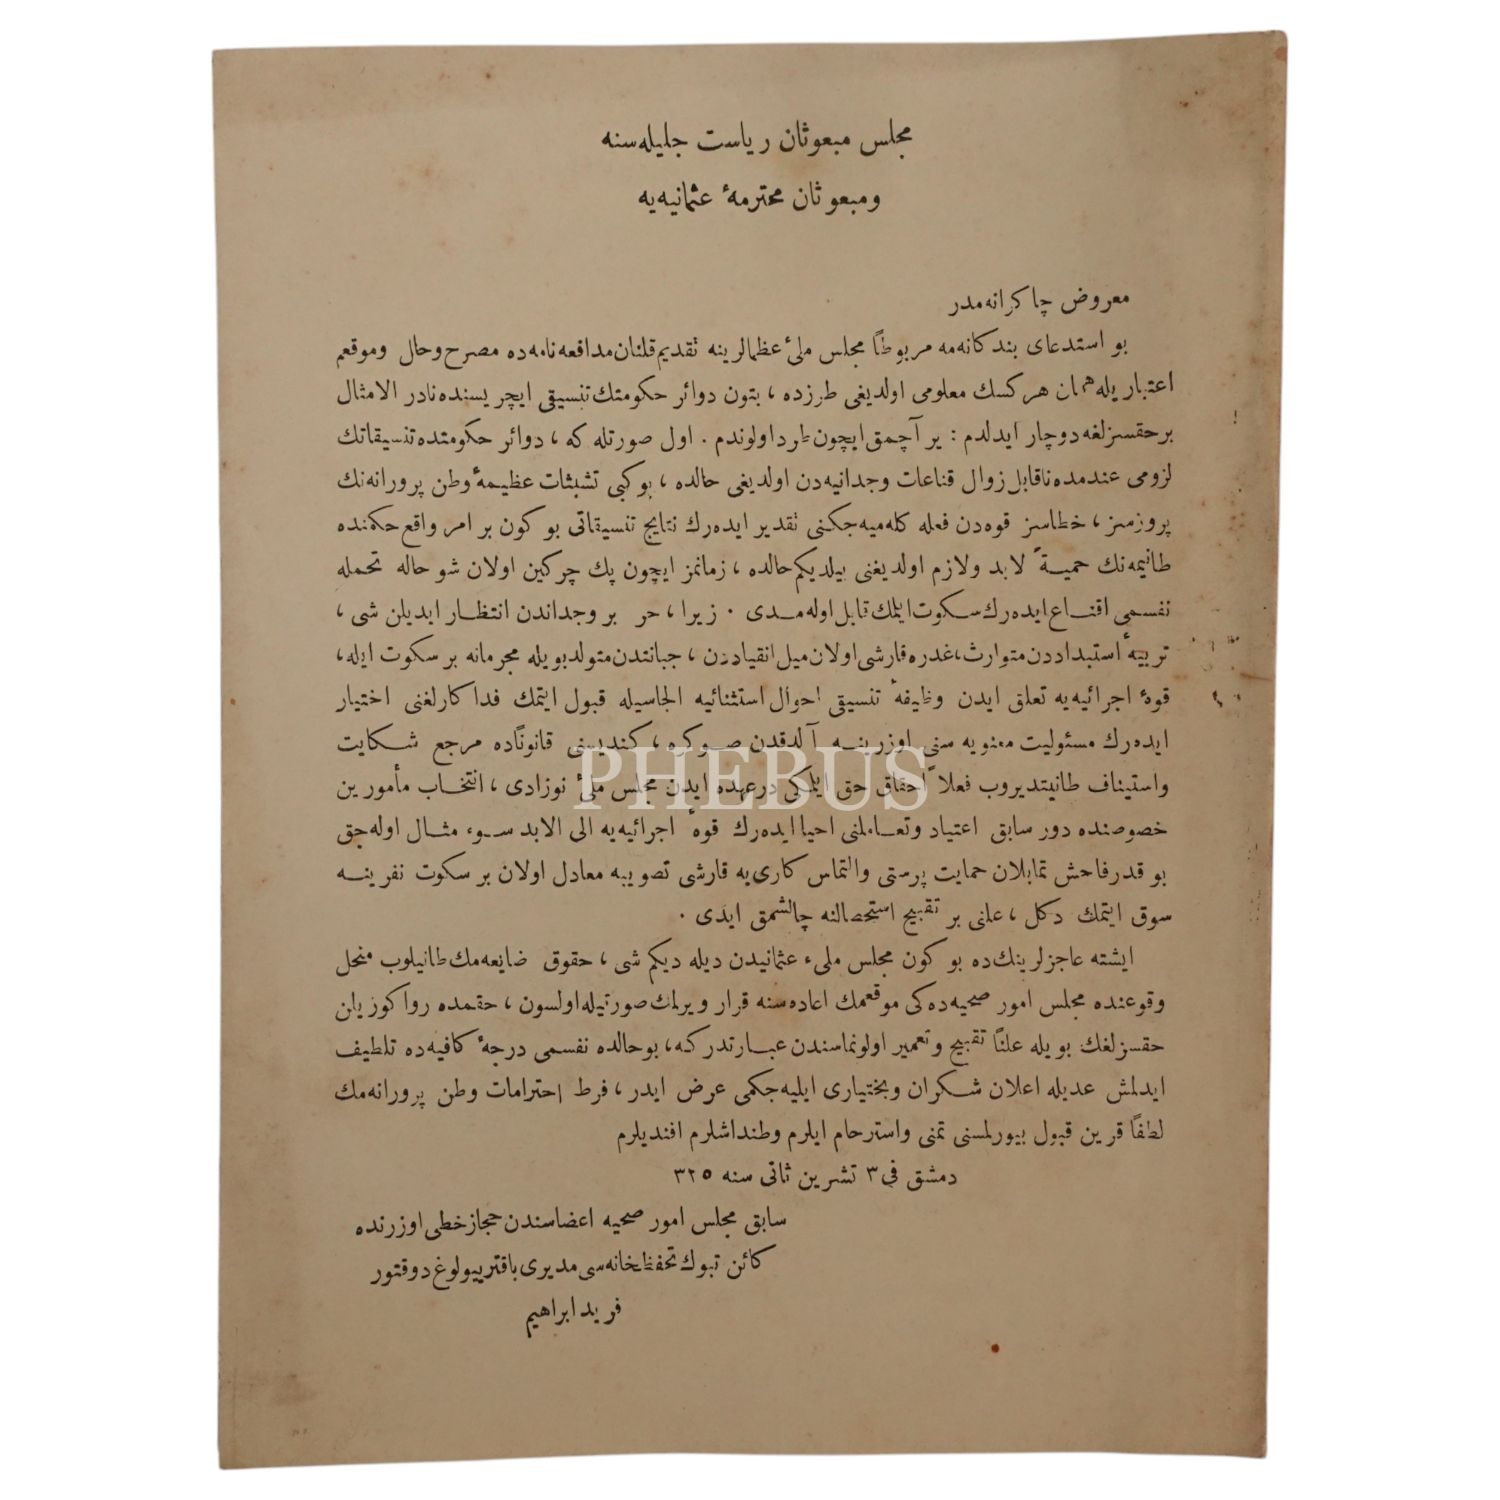 مجلس مبعوثان ریاست جلیله‌سنه
ومبعوثان محترمهٔ عثمانیه‌یه
معروض چاكرانه‌مدر
بو استدعای بندكانه‌مه مربوطاً مجلس ملیٔ عظمالرینه تقدیم قلنان مدافعه‌نامه‌ده مصرح وحال وموقعم
اعتباریله همان هركسك معلومی اولدیغی طرزده ، بتون دوائر حكومتك تنسیقی ایچریسنده نادر الامثال
برحقسزلغه دوچار ایدلدم : یر آچمق ایچون طرد اولوندم . اول صورتله كه ، دوائر حكومتده تنسیقاتك
لزومی عندمده ناقابل زوال قناعات وجدانیه‌دن اولدیغی حالده ، بوكبی تشبثات عظیمهٔ وطن پرورانه‌نك
پروزسز ، خطاسز قوه‌دن فعله كله‌میه‌جكنی تقدیر ایده‌رك نتایج تنسیقاتی بو كون بر امر واقع حكمنده
طانیمه‌نك حمیةً لابد ولازم اولدیغنی بیلدیكم حالده ، زمانمز ایچون پك چركین اولان شو حاله تحمله
نفسمی اقناع ایده‌رك سكوت ایلمك قابل اوله‌مدی . زیرا ، حر بر وجداندن انتظار ایدیلن شی ،
تربیهٔ استبداددن متوارث ، غدره قارشی اولان میل انقیاددن ، جبانتدن متولد بویله مجرمانه بر سكوت ایله ،
قوهٔ اجرائیه‌یه تعلق ایدن وظیفهٔ تنسیقی احوال استثنائیه الجاسیله قبول ایتمك فداكارلغنی اختیار
ایده‌رك مسئولیت معنویه‌سنی اوزرینه آلدقدن صوكره ، كندیسنی قانوناً ده مرجع شكایت
واستیناف طانیتدیروب فعلاً احقاق حق ایلمكی درعهده ایدن مجلس ملیٔ نوزادی ، انتخاب مأمورین
خصوصنده دور سابق اعتیاد وتعاملنی احیا ایده‌رك قوهٔ اجرائیه‌یه الی الابد سوء مثال اوله‌جق
بو قدر فاحش تمایلان حمایت پرستی والتماس كاری‌یه قارشی تصویبه معادل اولان بر سكوت نفرینه
سوق ایتمك دكل ، علنی بر تقبیح استحصالنه چالشمق ایدی .
ایشته عاجزلرینك ده بو كون مجلس ملیء عثمانیدن دیله دیكم شی ، حقوق ضایعه‌مك طانیلوب منحل
وقوعنده مجلس امور صحیه‌ده‌كی موقعمك اعاده‌سنه قرار ویرلمك صورتیله اولسون ، حقمده روا كوریلن
حقسزلغك بویله علناً تقبیح وتعمیر اولونماسندن عبارتدر كه ، بوحالده نفسمی درجهٔ كافیه‌ده تلطیف
ایدلمش عدیله اعلان شكران وبختیاری ایلیه‌جكمی عرض ایدر ، فرط احترامات وطن پرورانه‌مك
لطفاً قرین قبول بیورلمسنی تمنی واسترحام ایلرم وطنداشلرم افندیلرم
دمشق فی ٣ تشرین ثانی سنه ٣٢٥
سابق مجلس امور صحیه اعضاسندن حجاز خطی اوزرنده
كائن تبوك تحفظخانه‌سی مدیری باقتریولوغ دوقتور
فرید ابراهیم
PHEBUS